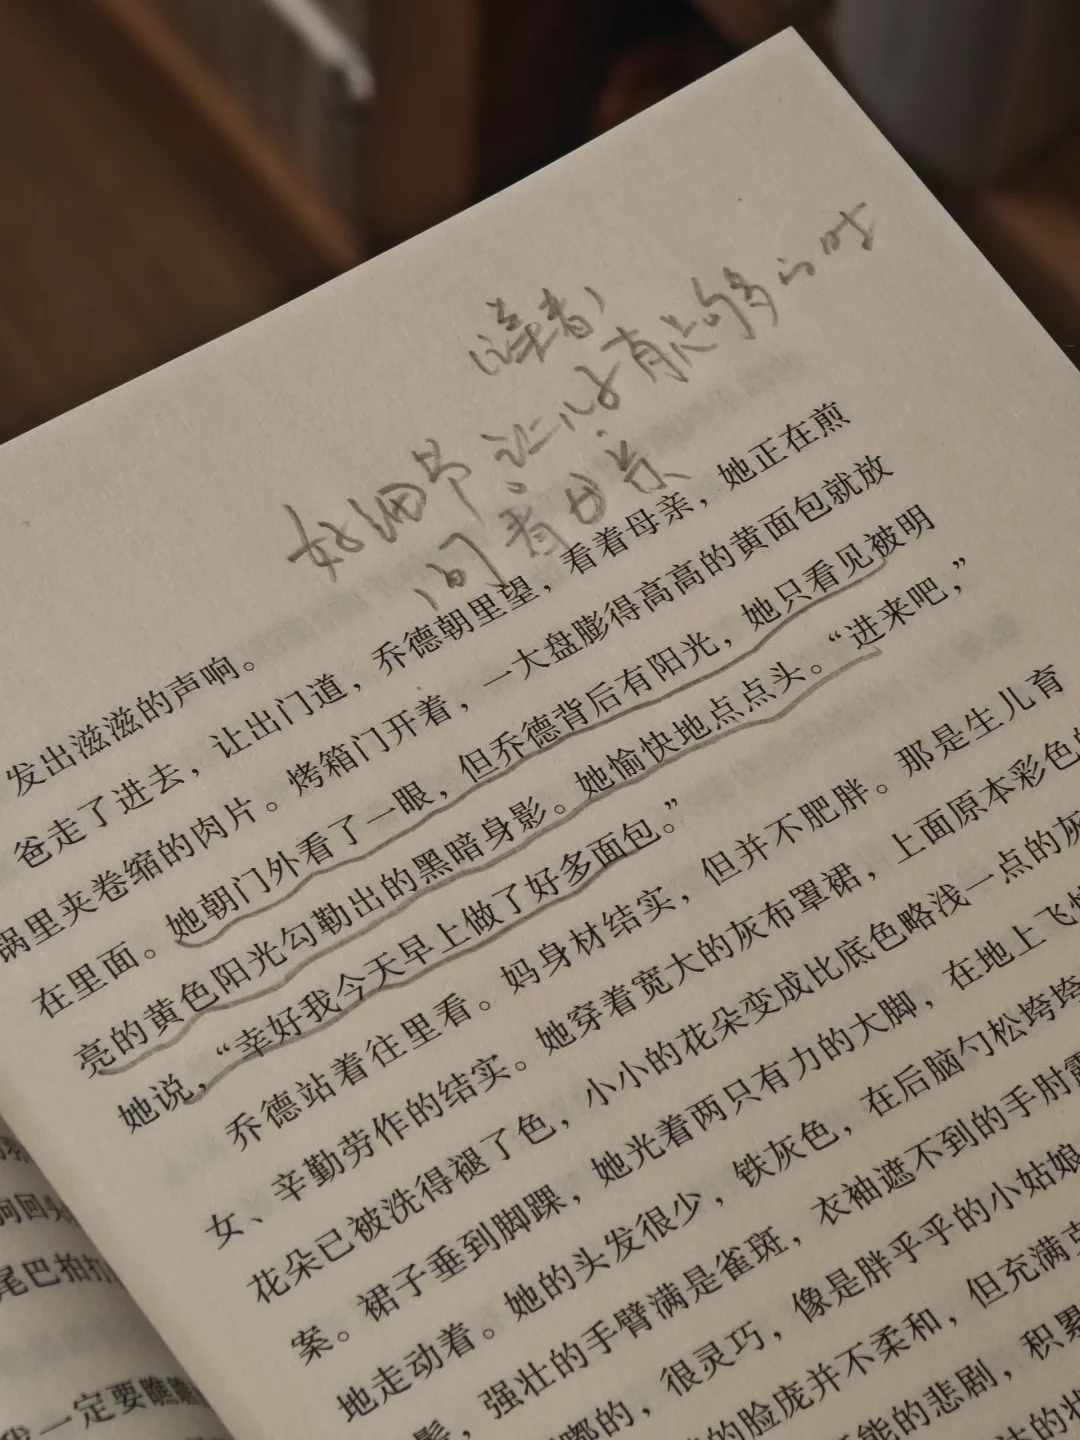 （读者）
好细节。让儿子有足够多的时
间看母亲
发出滋滋的声响。
爸走了进去，让出门道，乔德朝里望，看着母亲，她正在煎
锅里夹卷缩的肉片。烤箱门开着，一大盘膨得高高的黄面包就放
在里面。她朝门外看了一眼，但乔德背后有阳光，她只看见被明
亮的黄色阳光勾勒出的黑暗身影。她愉快地点点头。“进来吧，”
她说，“幸好我今天早上做了好多面包。”
乔德站着往里看。妈身材结实，但并不肥胖。那是生儿育
女、辛勤劳作的结实。她穿着宽大的灰布罩裙，上面原本彩色的
花朵已被洗得褪了色，小小的花朵变成比底色略浅一点的灰
案。裙子垂到脚踝，她光着两只有力的大脚，在地上飞快
地走动着。她的头发很少，铁灰色，在后脑勺松垮垮
髻，强壮的手臂满是雀斑，衣袖遮不到的手肘露
嘟的，很灵巧，像是胖乎乎的小姑娘
的脸庞并不柔和，但充满
能的悲剧，积累
达的状
狗回头
尾巴拍打
我一定要瞧瞧